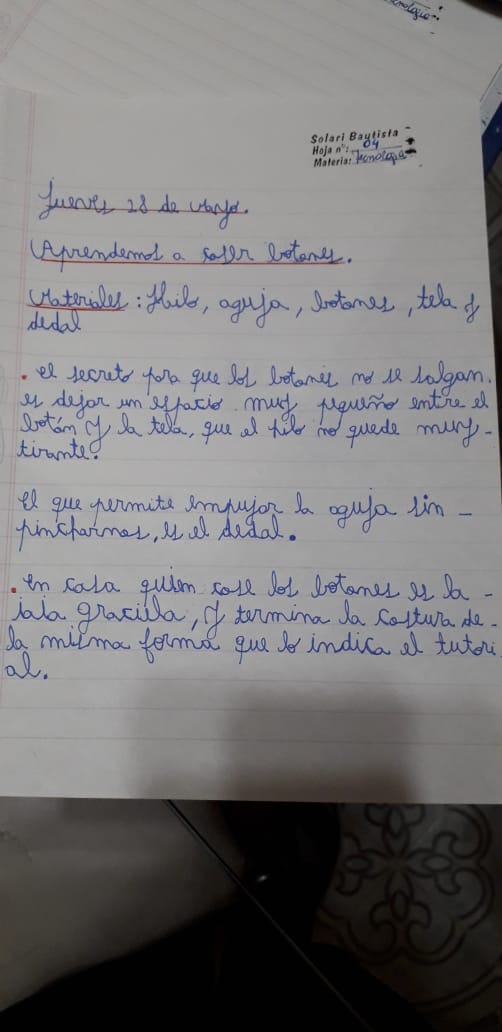 Solari Bautista
Hoja n°: 04
Materia: Tecnología
Jueves 28 de Mayo.
Aprendemos a coser botones.
Materiales: Hilo, aguja, botones, tela y
dedal
. el secreto para que los botones no se salgan.
es dejar un espacio muy pequeño entre el
botón y la tela, que el hilo no quede muy-
tirante.
El que permite empujar la aguja sin -
pincharnos, es el dedal.
. en casa quien cose los botones es la -
lala graciela, y termina la costura de-
la misma forma que lo indica el tutori
al.